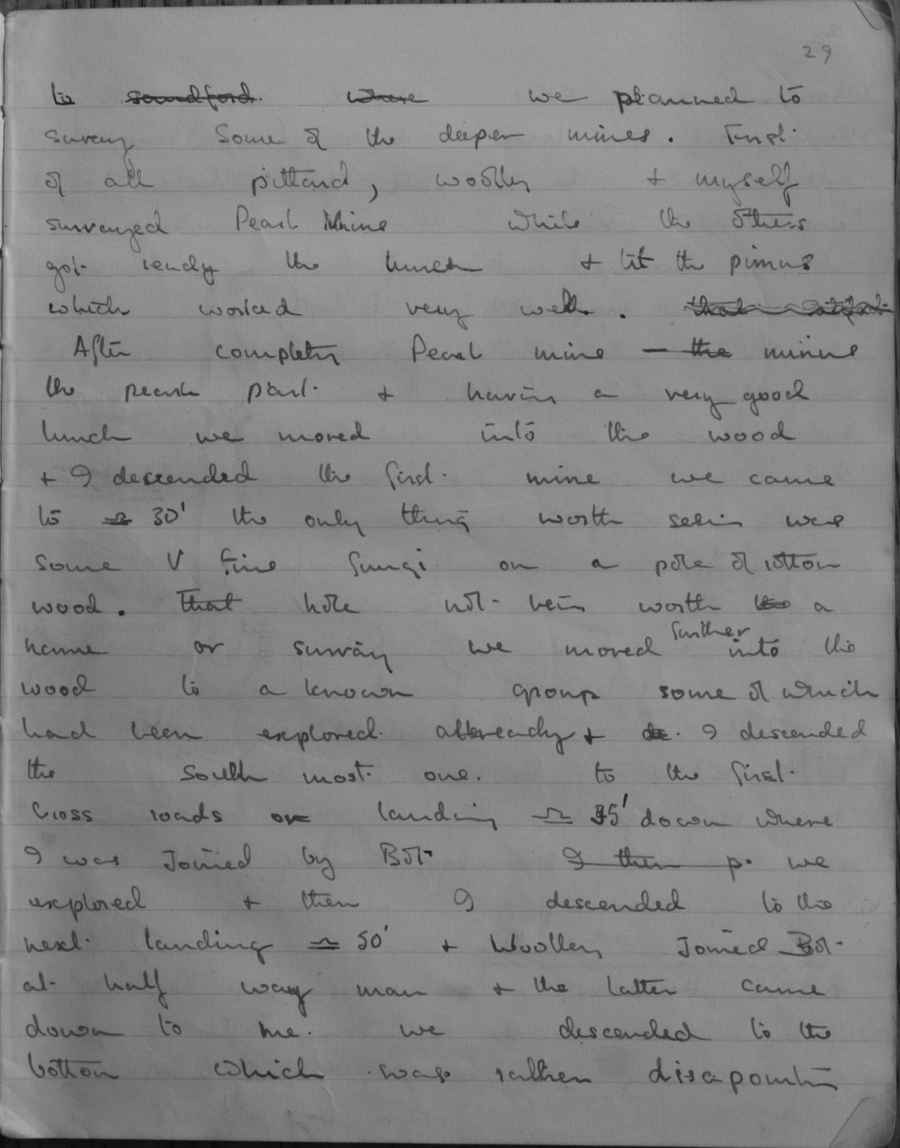 29
to soundford. where we planned to
survey some of the deeper mines. First.
of all pittard, woolley + myself
surveyed Pearl Mine while the others
got ready the lunch + lit the primus
which worked very well. that
After completing Pearl mine – the minus
the pearl part. + having a very good
lunch we moved into the wood
+ I descended the first. mine we came
to ≏ 30' the only thing worth seeing was
some V fine fungi on a pole of rotton
wood. That hole not being worth a
name or survey we moved further into the
wood to a known group some of which
had been explored. allready + I descended
the south most. one. to the first.
Cross roads or landing ≏ 35' down where
I was Joined by Bot. I then p. we
explored + then I descended to the
next. landing ≏ 50' + Woolley Joined Bot.
at. half way man + the latter came
down to me. we descended to the
bottom which was rather disapointing